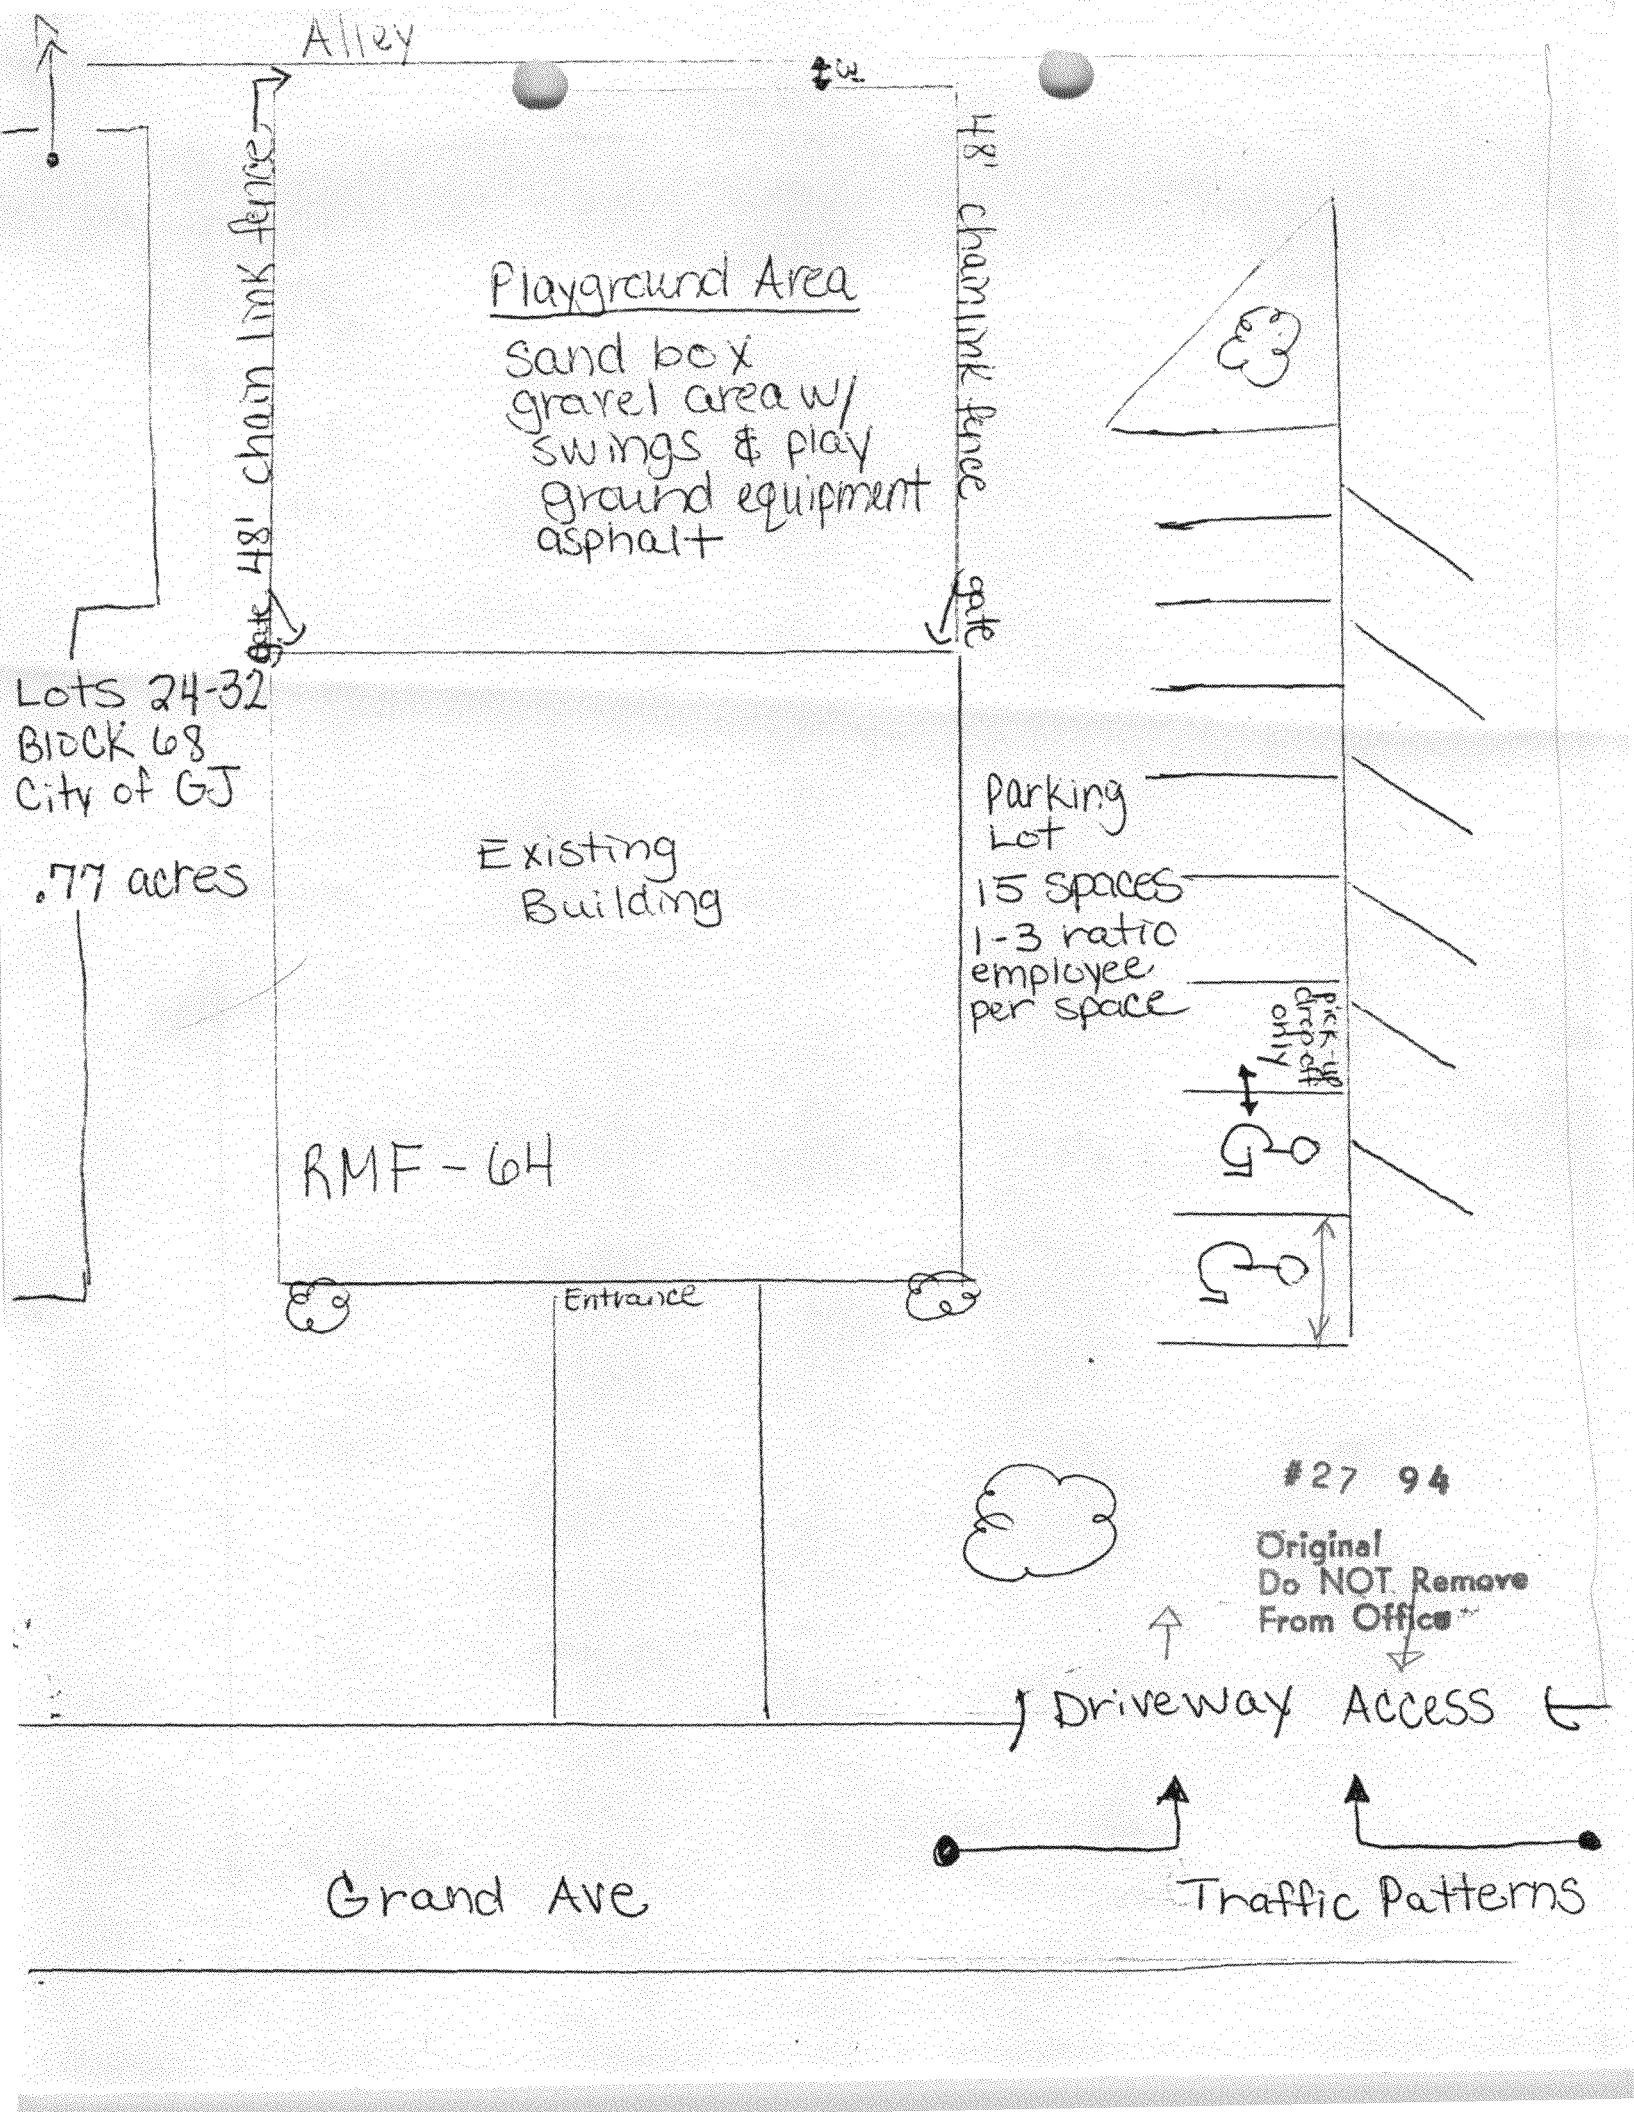 Alley
3'
48' chain link fence
48' chain link fence
Playground Area
sand box
gravel area w/
swings & play
ground equipment
asphalt
gate
gate
Lots 24-32
Block 68
City of GJ
.77 acres
Existing
Building
Parking
Lot
15 spaces
1-3 ratio
employee
per space
pick-up
drop-off
only
RMF-64
Entrance
#27 94
Original
Do NOT Remove
From Office
Driveway Access
Grand Ave
Traffic Patterns